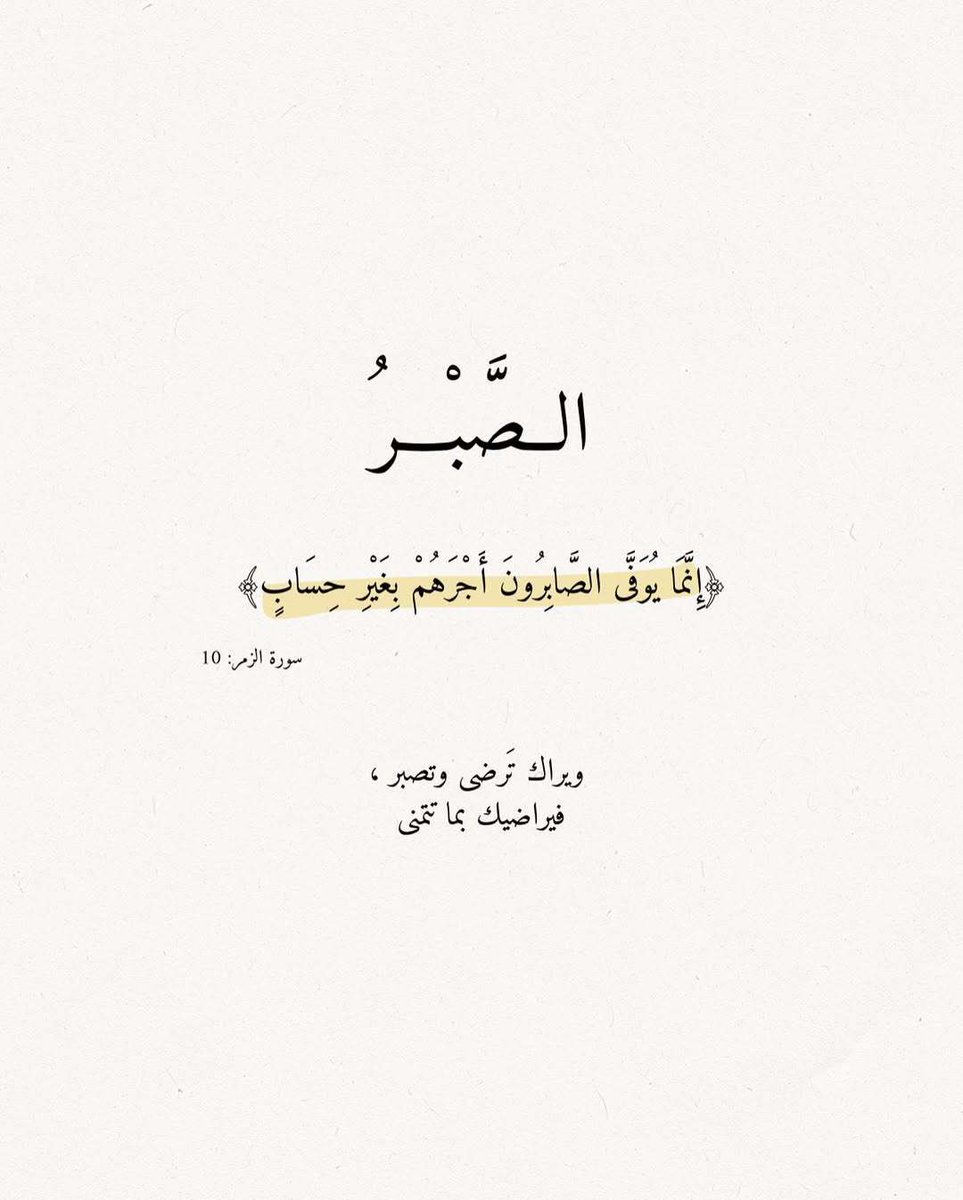 الـصَّبْـرُ
﴿إِنَّمَا يُوَفَّى الصَّابِرُونَ أَجْرَهُمْ بِغَيْرِ حِسَابٍ﴾
سورة الزمر: 10
ويراك تَرضى وتصبر ،
فيراضيك بما تتمنى